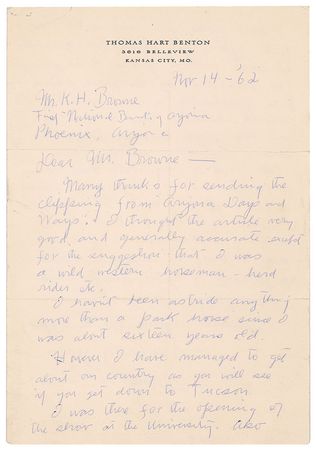 THOMAS HART BENTON
3616 BELLEVIEW
KANSAS CITY, MO.
Nov 14 - '62
Mr. K. H. Browne
First National Bank of Arizona
Phoenix, Arizona
Dear Mr. Browne —
Many thanks for sending the
clipping from "Arizona Days and
Ways". I thought the article very
good and generally accurate except
for the suggestion that I was
a wild western horseman - hard
rider etc.
I haven't been astride anything
more than a park horse since I
was about sixteen years old.
However I have managed to get
about our country as you will see
if you get down to Tucson.
I was there for the opening of
the show at the University. Also